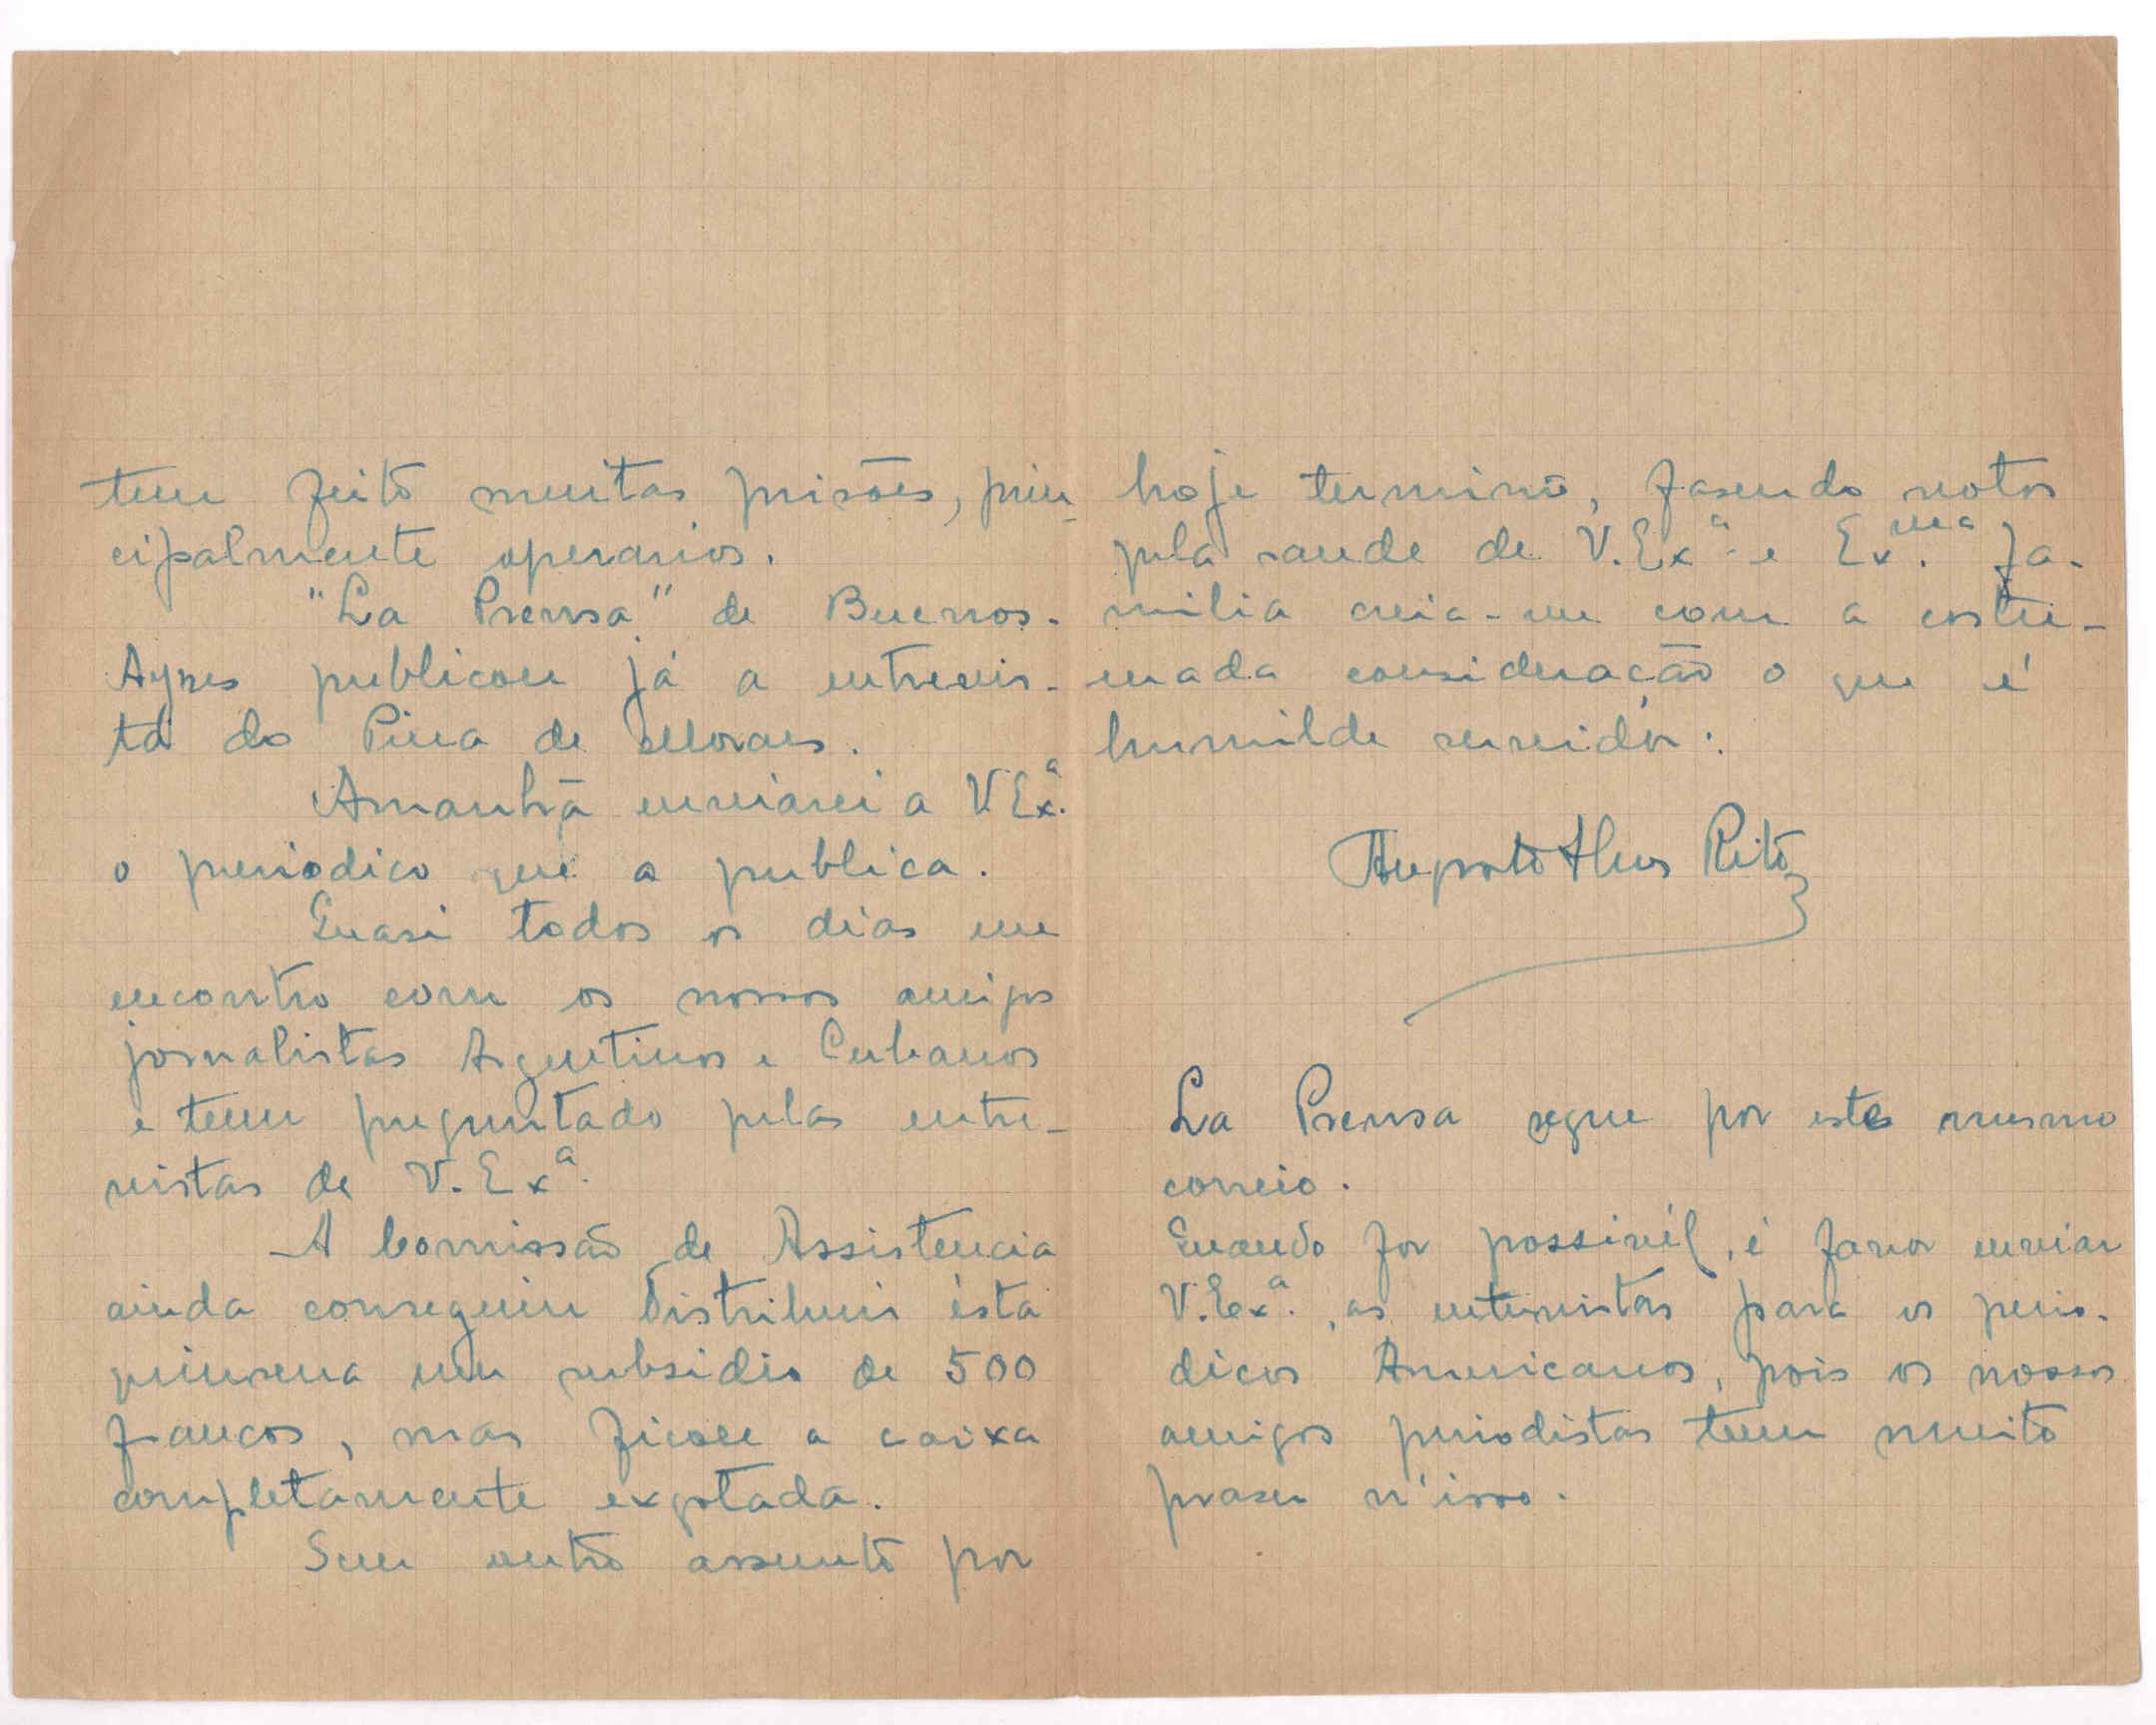 tem feito muitas prisões, prin-
cipalmente operarios.
"La Prensa" de Buenos-
Ayres publicou já a entrevis-
ta do Pina de Moraes.
Amanhã enviarei a V.Exª.
o periodico que a publica.
Quasi todos os dias me
encontro com os nossos amigos
jornalistas Argentinos e Cubanos
e teem preguntado pelas entre-
vistas de V.Exª.
A Comissão de Assistencia
ainda conseguiu distribuir ésta
quinzena um subsidio de 500
francos, mas ficou a caixa
completamente exgotada.
Sem outro assunto por
hoje termino, fasendo votos
pela saude de V.Exª e Ex.ma Fa-
milia creia-me com a costu-
mada consideração o que é
humilde servidôr:
Augusto Rito
La Prensa segue por este mesmo
correio.
Quando for possivél, é favor enviar
V.Exª., as entrevistas para os perio-
dicos Americanos, pois os nossos
amigos periodistas teem muito
praser n'isso.